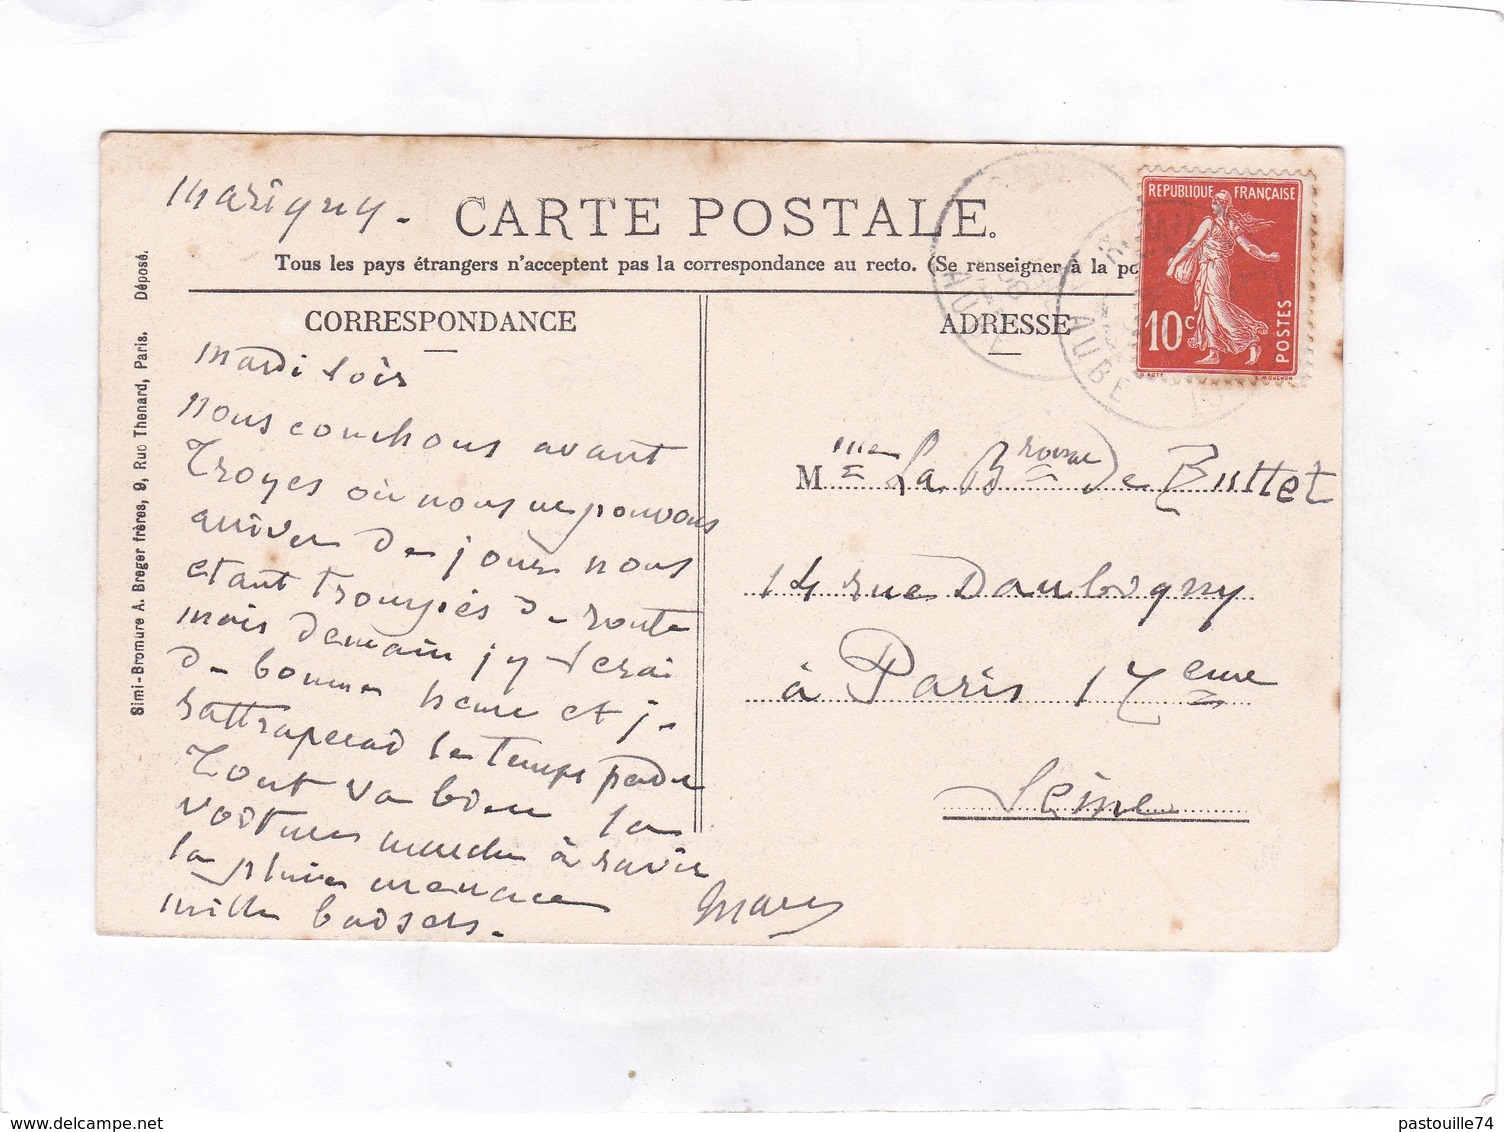 Marigny.
CARTE POSTALE.
Tous les pays étrangers n'acceptent pas la correspondance au recto. (Se renseigner à la po
CORRESPONDANCE
mardi soir
nous couchons avant
Troyes où nous ne pouvons
arriver de jour nous
etant trompiés de route
mais demain j y serai
de bonne heure et je
rattraperai le temps perdu
Tout va bien la
voiture marche à ravir
la pluie menace
mille baisers.
Mary
ADRESSE
Mme La Bronne De Buttet
14 rue Daubigny
à Paris 17eme
Seine
REPUBLIQUE FRANÇAISE
10c
POSTES
O. ROTY
E. MOUCHON
AUBE
AUBE
Simi-Bromure A. Breger frères, 9, Rue Thenard, Paris. Déposé.
pastouille74